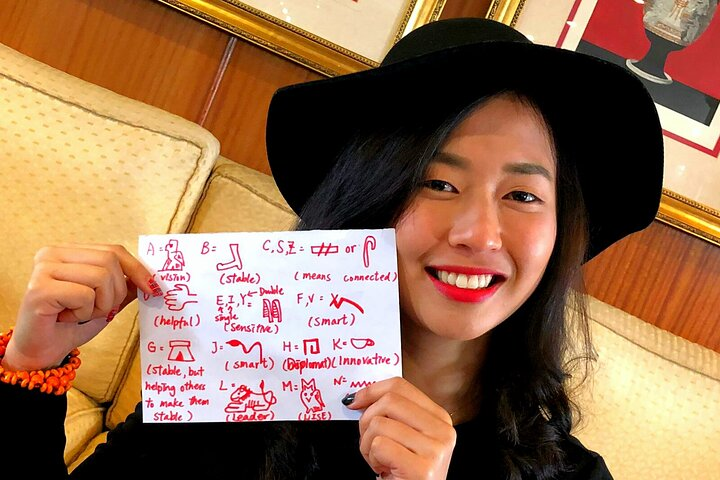 A = B = C, S, Z = or
(vision) (stable) (means connected)
E, I, Y = Double F, V =
single
(helpful) (sensitive) (smart)
G = J = H = K =
(stable, but (smart) (Diplomat) (innovative)
helping others L = M = N =
to make them
stable) (Leader) (WISE)